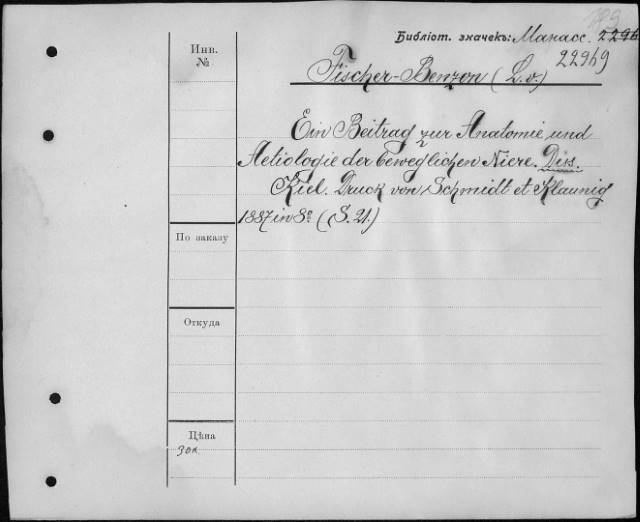 Библіот. значекъ: Манасс.
22969
Инв.
№
Fischer-Benzon (L. v.)
Ein Beitrag zur Anatomie und
Aetiologie der beweglichen Niere. Diss.
Kiel. Druck von Schmidt et Klaunig
1887 in 8° (S. 21.)
По заказу
Откуда
Цѣна
30к.